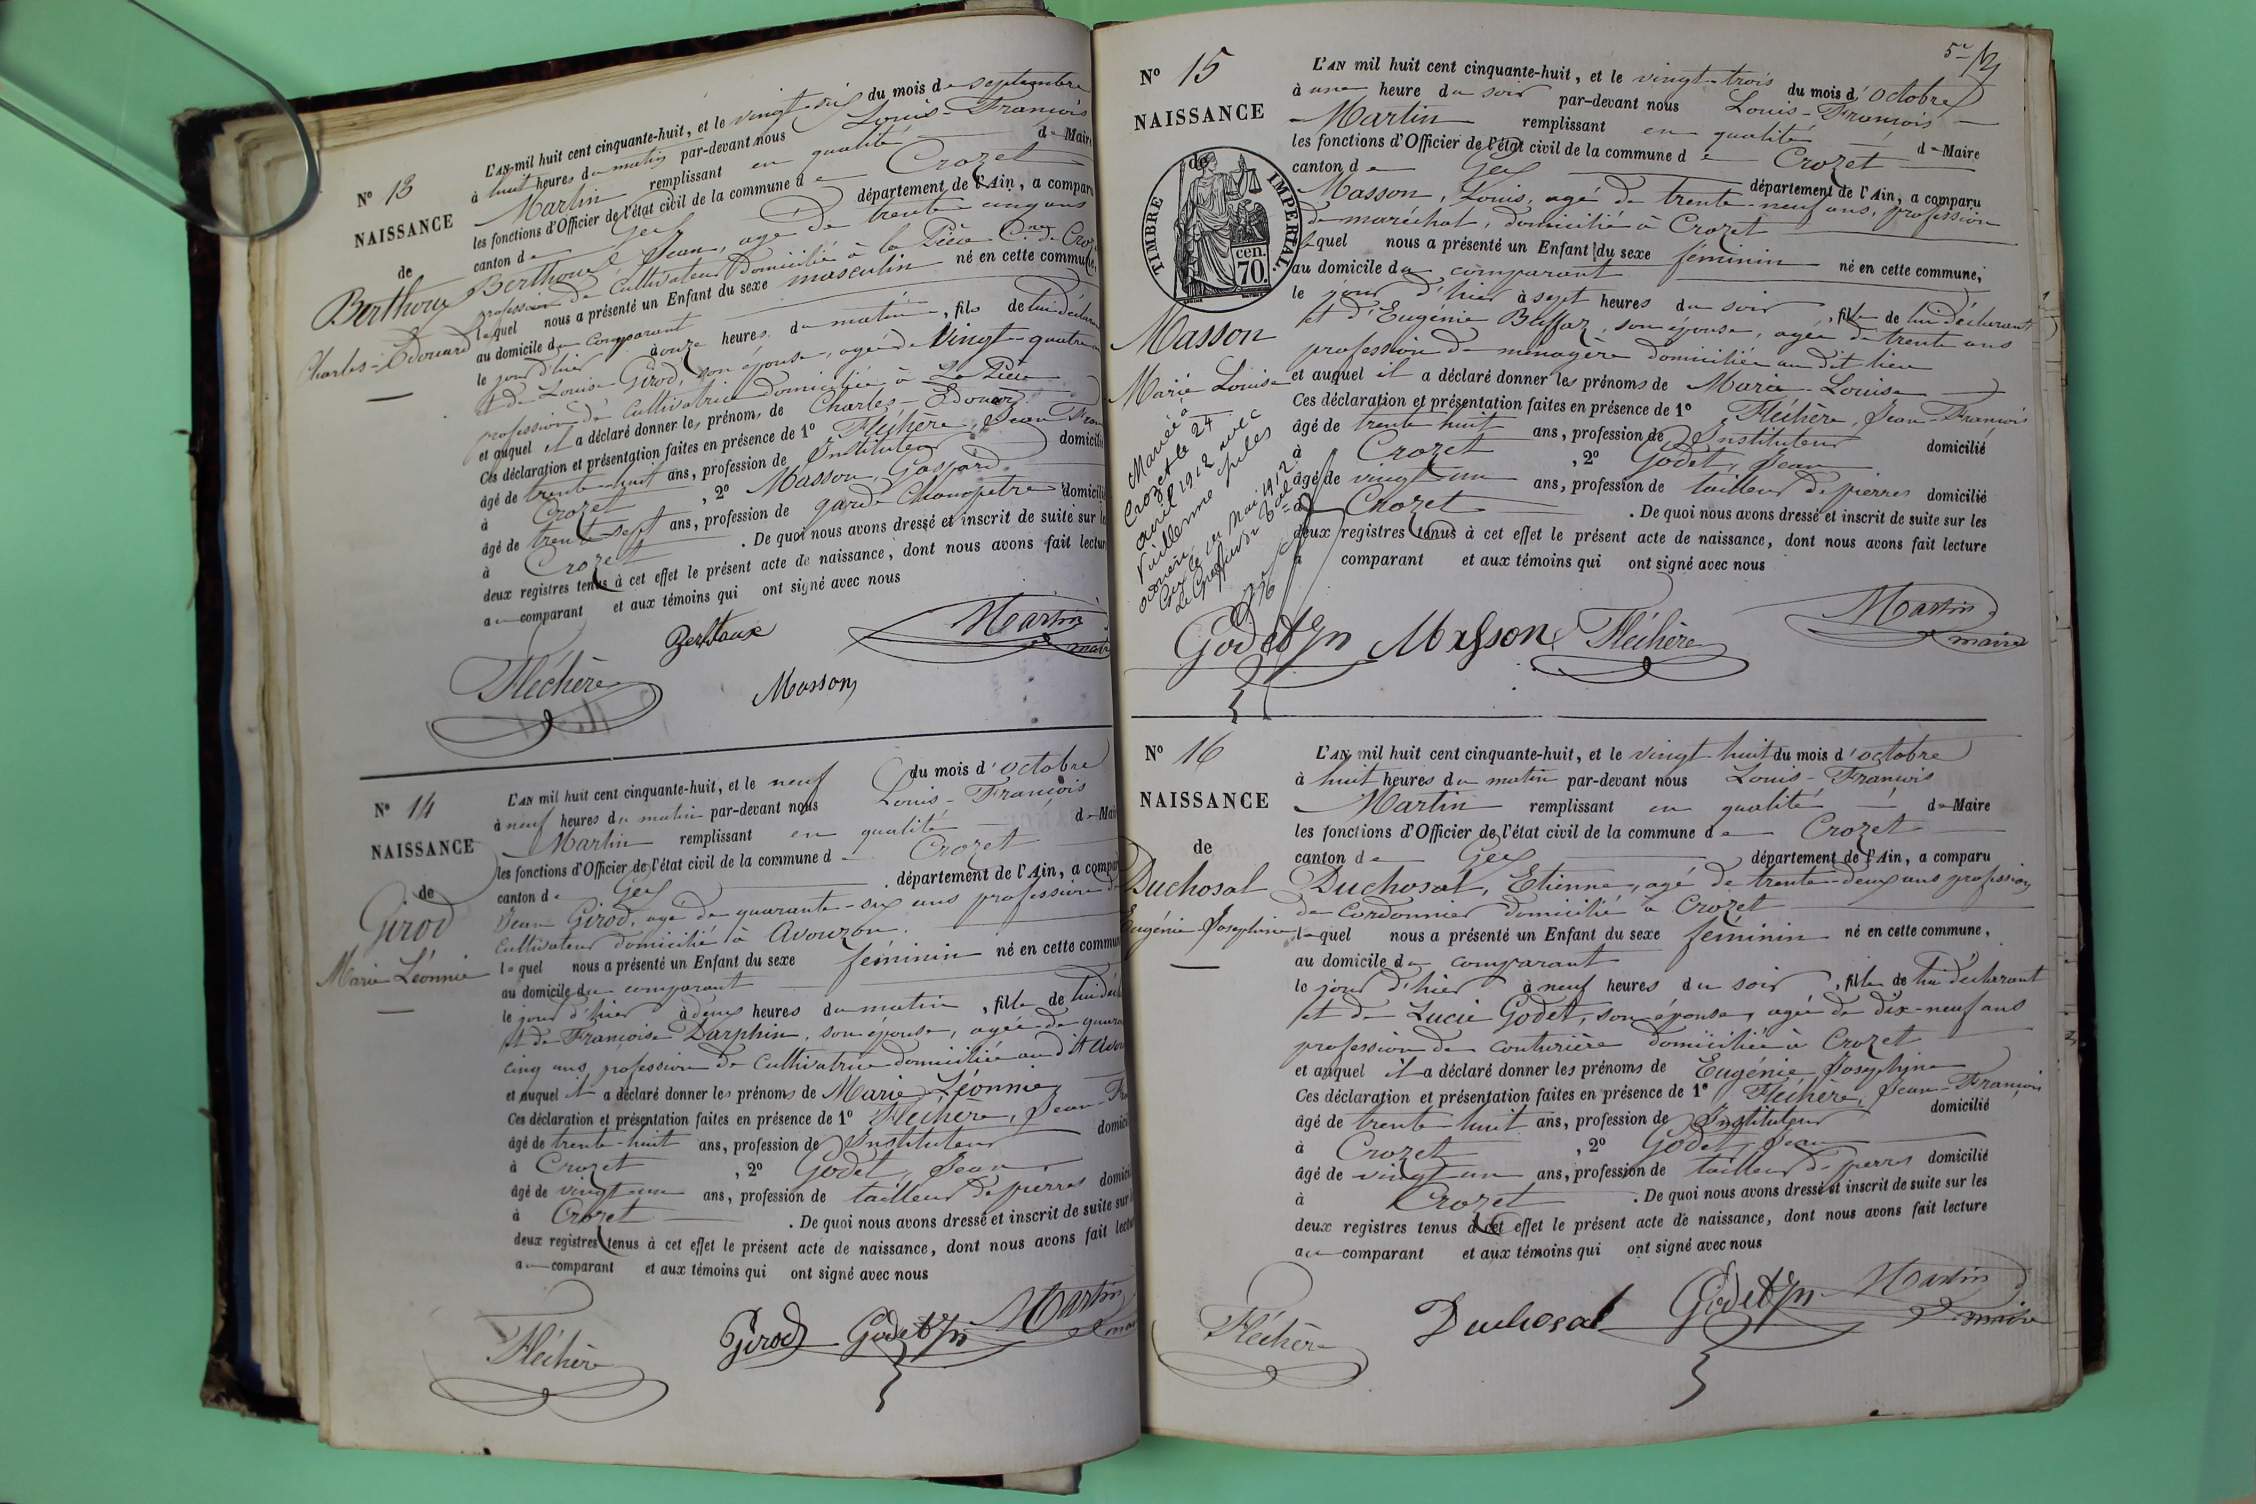 N° 13
NAISSANCE
de
Berthoux
Charles-Edouard
L'AN mil huit cent cinquante-huit, et le vingt-six du mois de septembre
à huit heures du matin par-devant nous Louis-François
Martin remplissant en qualité de Maire
les fonctions d'Officier de l'état civil de la commune de Crozet
canton de Gex département de l'Ain, a comparu
Berthoux Jean, agé de trente cinq ans
profession de cultivateur domicilié à la Pièce Cne de Croz
lequel nous a présenté un Enfant du sexe masculin né en cette commune,
au domicile du comparant
le jour d'hier à onze heures du matin, fils de lui déclarant
et de Louise Girod, son épouse, agée de vingt-quatre
profession de cultivatrice domiciliée à La Pièce
et auquel il a déclaré donner les prénoms de Charles-Edouard
Ces déclaration et présentation faites en présence de 1° Fléchère, Jean Fran
âgé de trente-huit ans, profession de Instituteur domicilié
à Crozet, 2° Masson, Gaspard
âgé de trente sept ans, profession de garde Champetre domicilié
à Crozet. De quoi nous avons dressé et inscrit de suite sur les
deux registres tenus à cet effet le présent acte de naissance, dont nous avons fait lecture
au comparant et aux témoins qui ont signé avec nous
Berthoux Martin
maire
Fléchère Masson
N° 14
NAISSANCE
de
Girod
Marie Léonnie
L'AN mil huit cent cinquante-huit, et le neuf du mois d'octobre
à neuf heures du matin par-devant nous Louis-François
Martin remplissant en qualité de Maire
les fonctions d'Officier de l'état civil de la commune de Crozet
canton de Gex, département de l'Ain, a comparu
Jean Girod, agé de quarante-six ans profession de
cultivateur domicilié à Avouzon.
lequel nous a présenté un Enfant du sexe féminin né en cette commune
au domicile du comparant
le jour d'hier à deux heures du matin, fille de lui décla
et de Françoise Darphin, son épouse, agée de quara
cinq ans, profession de cultivatrice domiciliée au dit Avou
et auquel il a déclaré donner les prénoms de Marie Léonnie
Ces déclaration et présentation faites en présence de 1° Fléchère, Jean-Fra
âgé de trente-huit ans, profession de Instituteur domicil
à Crozet, 2° Godet, Jean
âgé de vingt-un ans, profession de tailleur de pierres domicil
à Crozet. De quoi nous avons dressé et inscrit de suite sur l
deux registres tenus à cet effet le présent acte de naissance, dont nous avons fait lectu
au comparant et aux témoins qui ont signé avec nous
Fléchère Girod Godet Jn Martin
maire
5e
N° 15
NAISSANCE
de
TIMBRE IMPERIAL.
70 cen.
Masson
Marie Louise
Mariée à
Crozet le 24
avril 1912 avec
Vuillerme Jules
Gex le 1er mai 1912
Le Greffier du Bal
L'AN mil huit cent cinquante-huit, et le vingt-trois du mois d'octobre
à une heure du soir par-devant nous Louis-François
Martin remplissant en qualité de Maire
les fonctions d'Officier de l'état civil de la commune de Crozet
canton de Gex département de l'Ain, a comparu
Masson, Louis, agé de trente-neuf ans, profession
de maréchal, domicilié à Crozet
lequel nous a présenté un Enfant du sexe féminin né en cette commune,
au domicile du comparant
le jour d'hier à sept heures du soir, fille de lui déclarant
et d'Eugénie Buffaz, son épouse, agée de trente ans
profession de ménagère domiciliée au dit lieu
et auquel il a déclaré donner les prénoms de Marie-Louise
Ces déclaration et présentation faites en présence de 1° Fléchère, Jean-François
âgé de trente huit ans, profession de Instituteur domicilié
à Crozet, 2° Godet, Jean
âgé de vingt un ans, profession de tailleur de pierres domicilié
à Crozet. De quoi nous avons dressé et inscrit de suite sur les
deux registres tenus à cet effet le présent acte de naissance, dont nous avons fait lecture
a comparant et aux témoins qui ont signé avec nous
Godet Jn Masson Fléchère Martin
maire
N° 16
NAISSANCE
de
Duchosal
Eugénie Josephine
L'AN mil huit cent cinquante-huit, et le vingt huit du mois d'octobre
à huit heures du matin par-devant nous Louis-François
Martin remplissant en qualité de Maire
les fonctions d'Officier de l'état civil de la commune de Crozet
canton de Gex département de l'Ain, a comparu
Duchosal, Etienne, agé de trente-deux ans profession
de cordonnier domicilié à Crozet
lequel nous a présenté un Enfant du sexe féminin né en cette commune,
au domicile du comparant
le jour d'hier à neuf heures du soir, fille de lui déclarant
et de Lucie Godet, son épouse, agée de dix-neuf ans
profession de couturière domiciliée à Crozet
et auquel il a déclaré donner les prénoms de Eugénie Josephine
Ces déclaration et présentation faites en présence de 1° Fléchère, Jean-François
âgé de trente huit ans, profession de Instituteur domicilié
à Crozet, 2° Godet, Jean
âgé de vingt un ans, profession de tailleur de pierres domicilié
à Crozet. De quoi nous avons dressé et inscrit de suite sur les
deux registres tenus à cet effet le présent acte de naissance, dont nous avons fait lecture
au comparant et aux témoins qui ont signé avec nous
Fléchère Duchosal Godet Jn Martin
maire